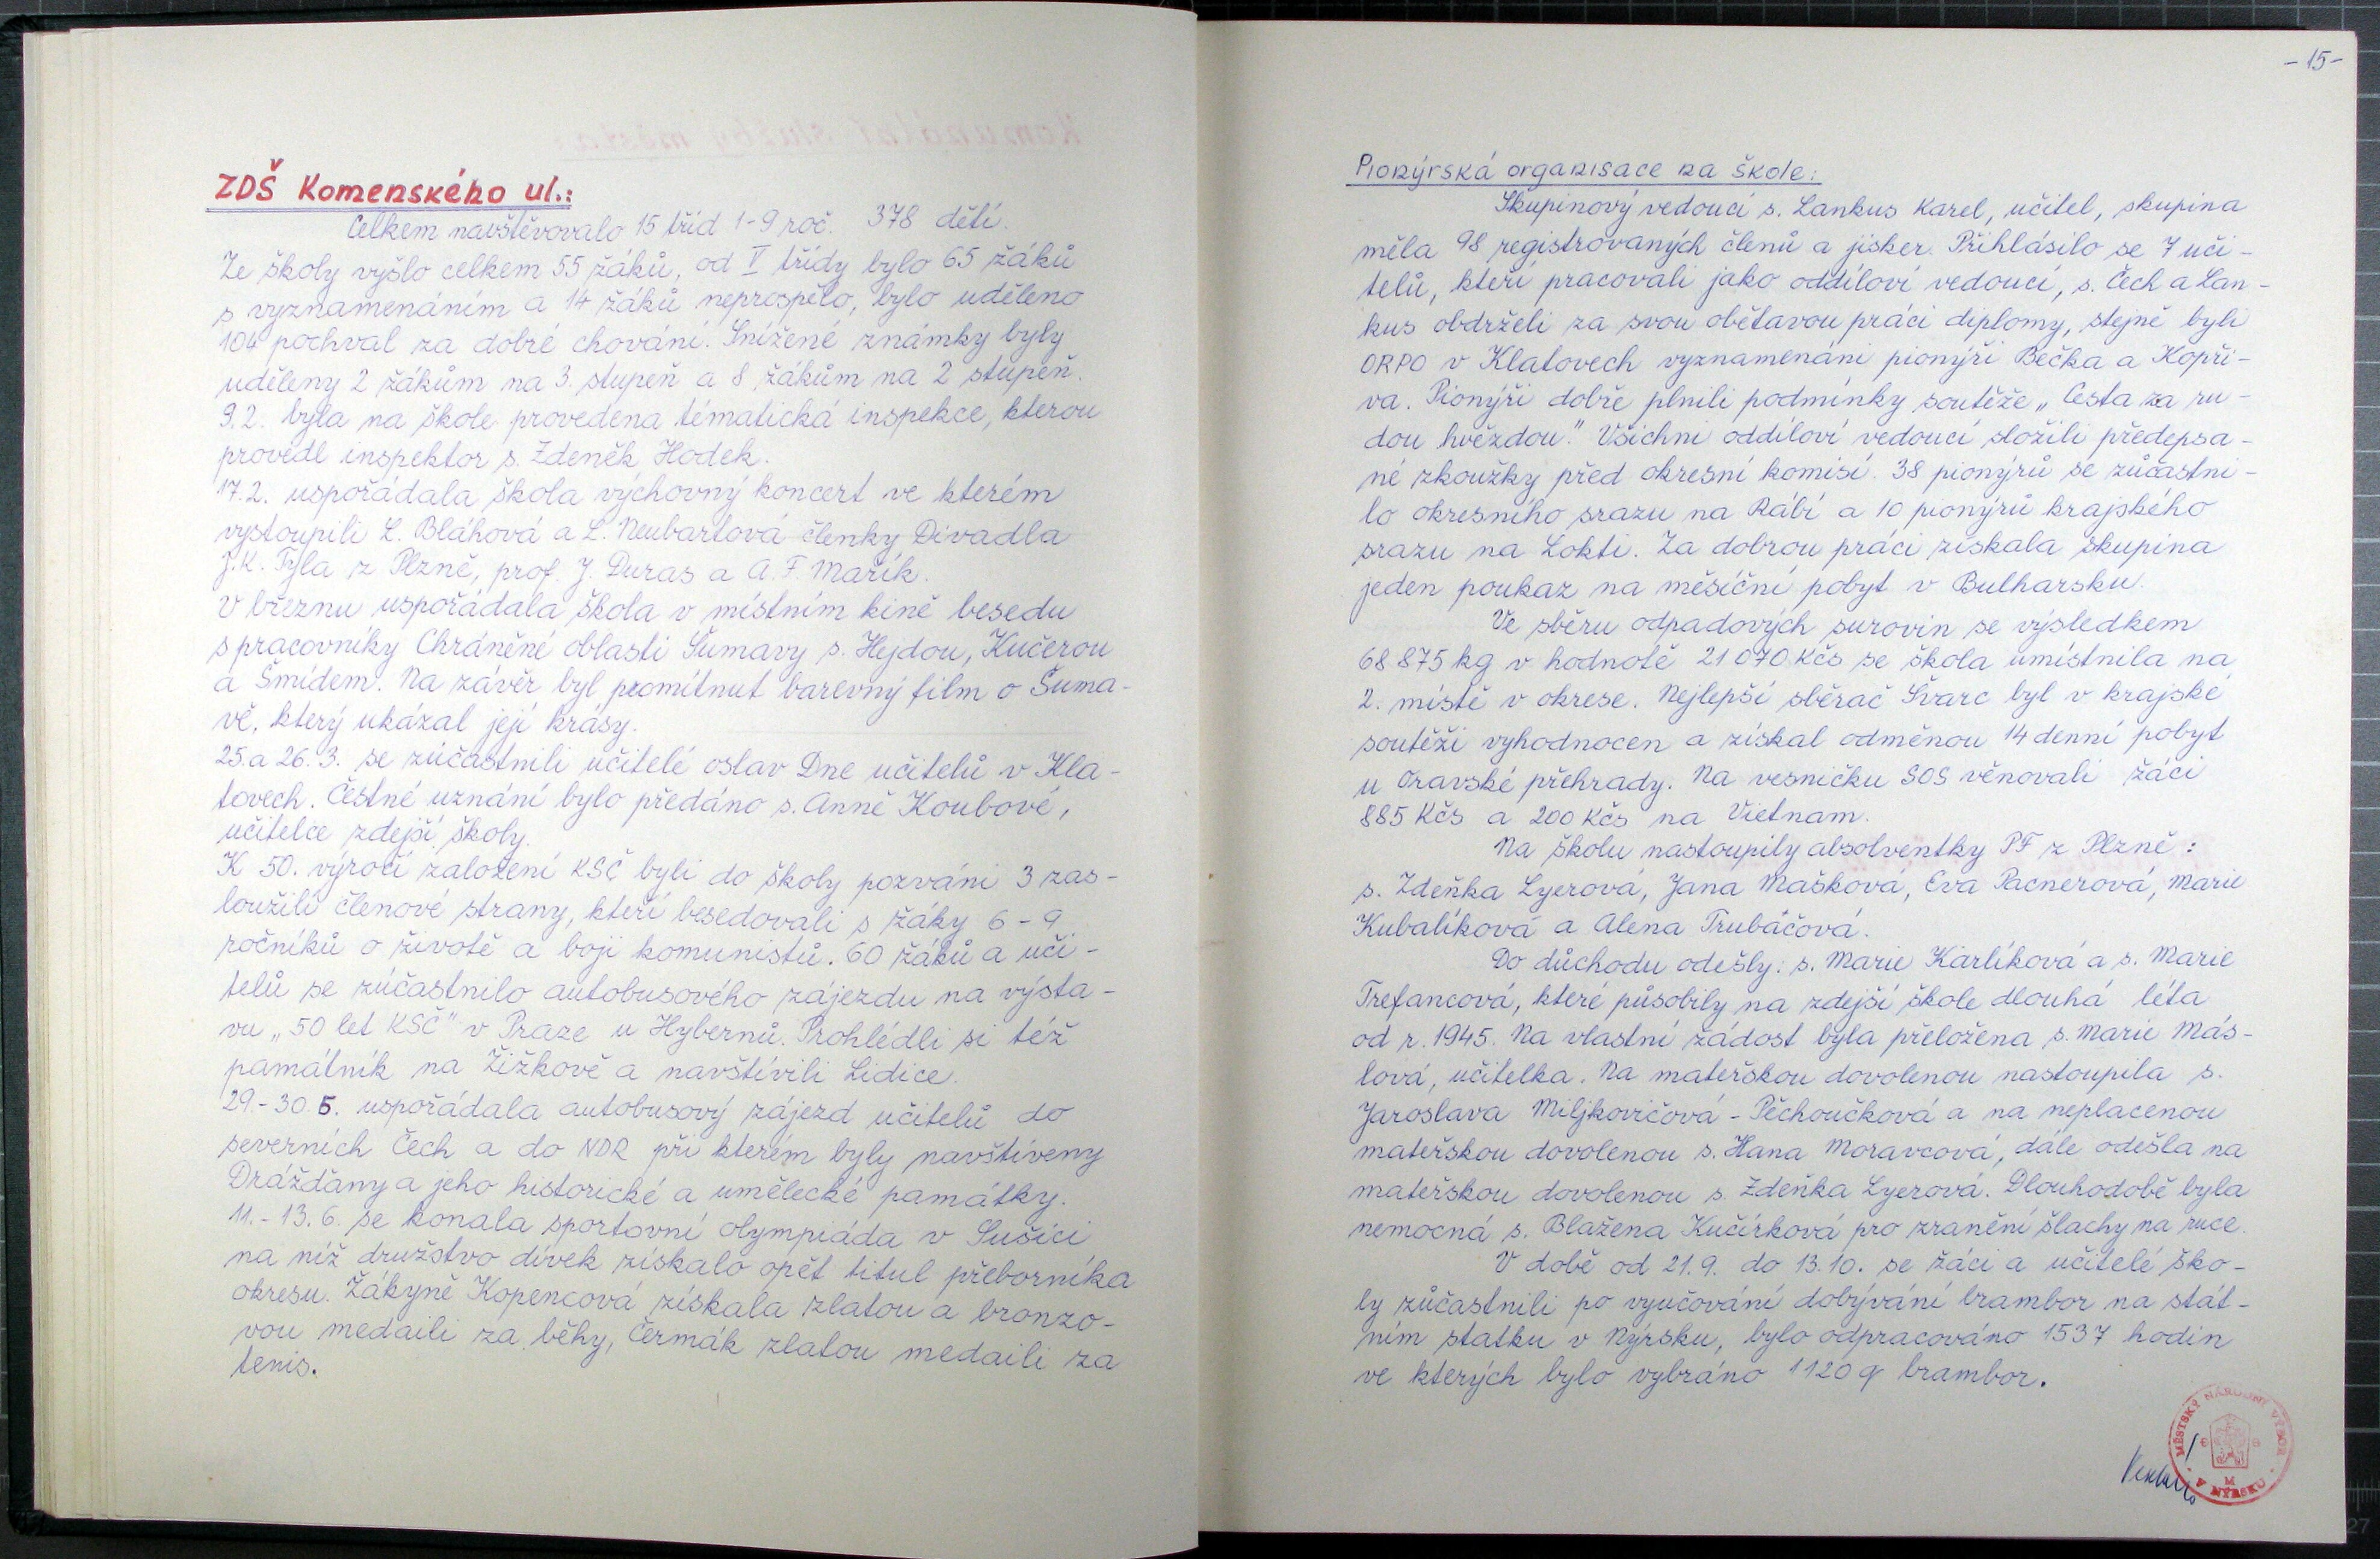 ZDŠ Komenského ul.:
Celkem navštěvovalo 15 tříd 1-9 roč. 378 dětí.
Ze školy vyšlo celkem 55 žáků, od V třídy bylo 65 žáků
s vyznamenáním a 14 žáků neprospělo, bylo uděleno
104 pochval za dobré chování. Snížené známky byly
uděleny 2 žákům na 3. stupeň a 8 žákům na 2 stupeň.
9.2. byla na škole provedena tématická inspekce, kterou
provedl inspektor s. Zdeněk Hodek.
17.2. uspořádala škola výchovný koncert ve kterém
vystoupili L. Bláhová a L. Neubartová členky Divadla
J.K. Tyla z Plzně, prof. J. Duras a A.F. Mařík.
V březnu uspořádala škola v místním kině besedu
s pracovníky Chráněné oblasti Šumavy s. Hejdou, Kučerou
a Šmídem. Na závěr byl promítnut barevný film o Šuma-
vě, který ukázal její krásy.
25.a 26.3. se zúčastnili učitelé oslav Dne učitelů v Kla-
tovech. Čestné uznání bylo předáno s. Anně Koubové,
učitelce zdejší školy.
K 50. výročí založení KSČ byli do školy pozváni 3 zas-
loužilí členové strany, kteří besedovali s žáky 6-9
ročníků o životě a boji komunistů. 60 žáků a uči-
telů se zúčastnilo autobusového zájezdu na výsta-
vu „50 let KSČ" v Praze u Hybernů. Prohlédli si též
památník na Žižkově a navštívili Lidice.
29.-30.5. uspořádala autobusový zájezd učitelů do
severních Čech a do NDR při kterém byly navštíveny
Drážďany a jeho historické a umělecké památky.
11.-13.6. se konala sportovní olympiáda v Sušici
na níž družstvo dívek získalo opět titul přeborníka
okresu. Žákyně Kopencová získala zlatou a bronzo-
vou medaili za běhy, Čermák zlatou medaili za
tenis.
-15-
Pionýrská organisace na škole:
Skupinový vedoucí s. Lankus Karel, učitel, skupina
měla 98 registrovaných členů a jisker. Přihlásilo se 7 uči-
telů, kteří pracovali jako oddíloví vedoucí, s. Čech a Lan-
kus obdrželi za svou obětavou práci diplomy, stejně byli
ORPO v Klatovech vyznamenáni pionýři Bečka a Kopři-
va. Pionýři dobře plnili podmínky soutěže „Cesta za ru-
dou hvězdou." Všichni oddíloví vedoucí složili předepsa-
né zkoužky před okresní komisí. 38 pionýrů se zůčastni-
lo okresního srazu na Rábí a 10 pionýrů krajského
srazu na Lokti. Za dobrou práci získala skupina
jeden poukaz na měsíční pobyt v Bulharsku.
Ve sběru odpadových surovin se výsledkem
68 875 kg v hodnotě 21 070 Kčs se škola umístnila na
2. místě v okrese. Nejlepší sběrač Švarc byl v krajské
soutěži vyhodnocen a získal odměnou 14 denní pobyt
u Oravské přehrady. Na vesničku SOS věnovali žáci
885 Kčs a 200 Kčs na Vietnam.
Na školu nastoupily absolventky PF z Plzně:
s. Zdeňka Lyerová, Jana Mašková, Eva Pacnerová, Marie
Kubalíková a Alena Trubáčová.
Do důchodu odešly: s. Marie Kärlíková a s. Marie
Trefancová, které působily na zdejší škole dlouhá léta
od r. 1945. Na vlastní žádost byla přeložena s. Marie Más-
lová, učitelka. Na mateřskou dovolenou nastoupila s.
Jaroslava Miljkovičová - Pěchoučková a na neplacenou
mateřskou dovolenou s. Hana Moravcová, dále odešla na
mateřskou dovolenou s. Zdeňka Lyerová. Dlouhodobě byla
nemocná s. Blažena Kučírková pro zranění šlachy na ruce.
V době od 21.9. do 13.10. se žáci a učitelé ško-
ly zůčastnili po vyučování dobývání brambor na stát-
ním statku v Nýrsku, bylo odpracováno 1537 hodin
ve kterých bylo vybráno 1120 q brambor.
MĚSTSKÝ NÁRODNÍ VÝBOR
V NÝRSKU
27